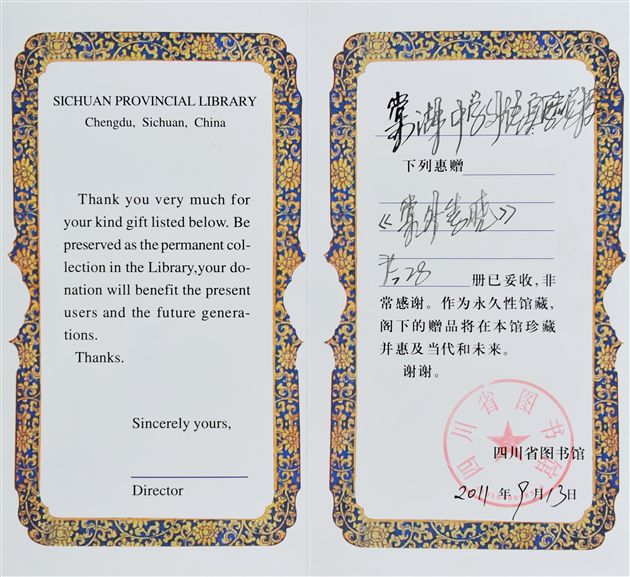 SICHUAN PROVINCIAL LIBRARY
Chengdu, Sichuan, China
Thank you very much for
your kind gift listed below. Be
preserved as the permanent col-
lection in the Library,your do-
nation will benefit the present
users and the future genera-
tions.
Thanks.
Sincerely yours,
Director
棠湖中学外语实验学校
下列惠赠
《棠外春晓》
册已妥收,非
常感谢。作为永久性馆藏,
阁下的赠品将在本馆珍藏
并惠及当代和未来。
谢谢。
四川省图书馆
四川省图书馆
2011年9月13日